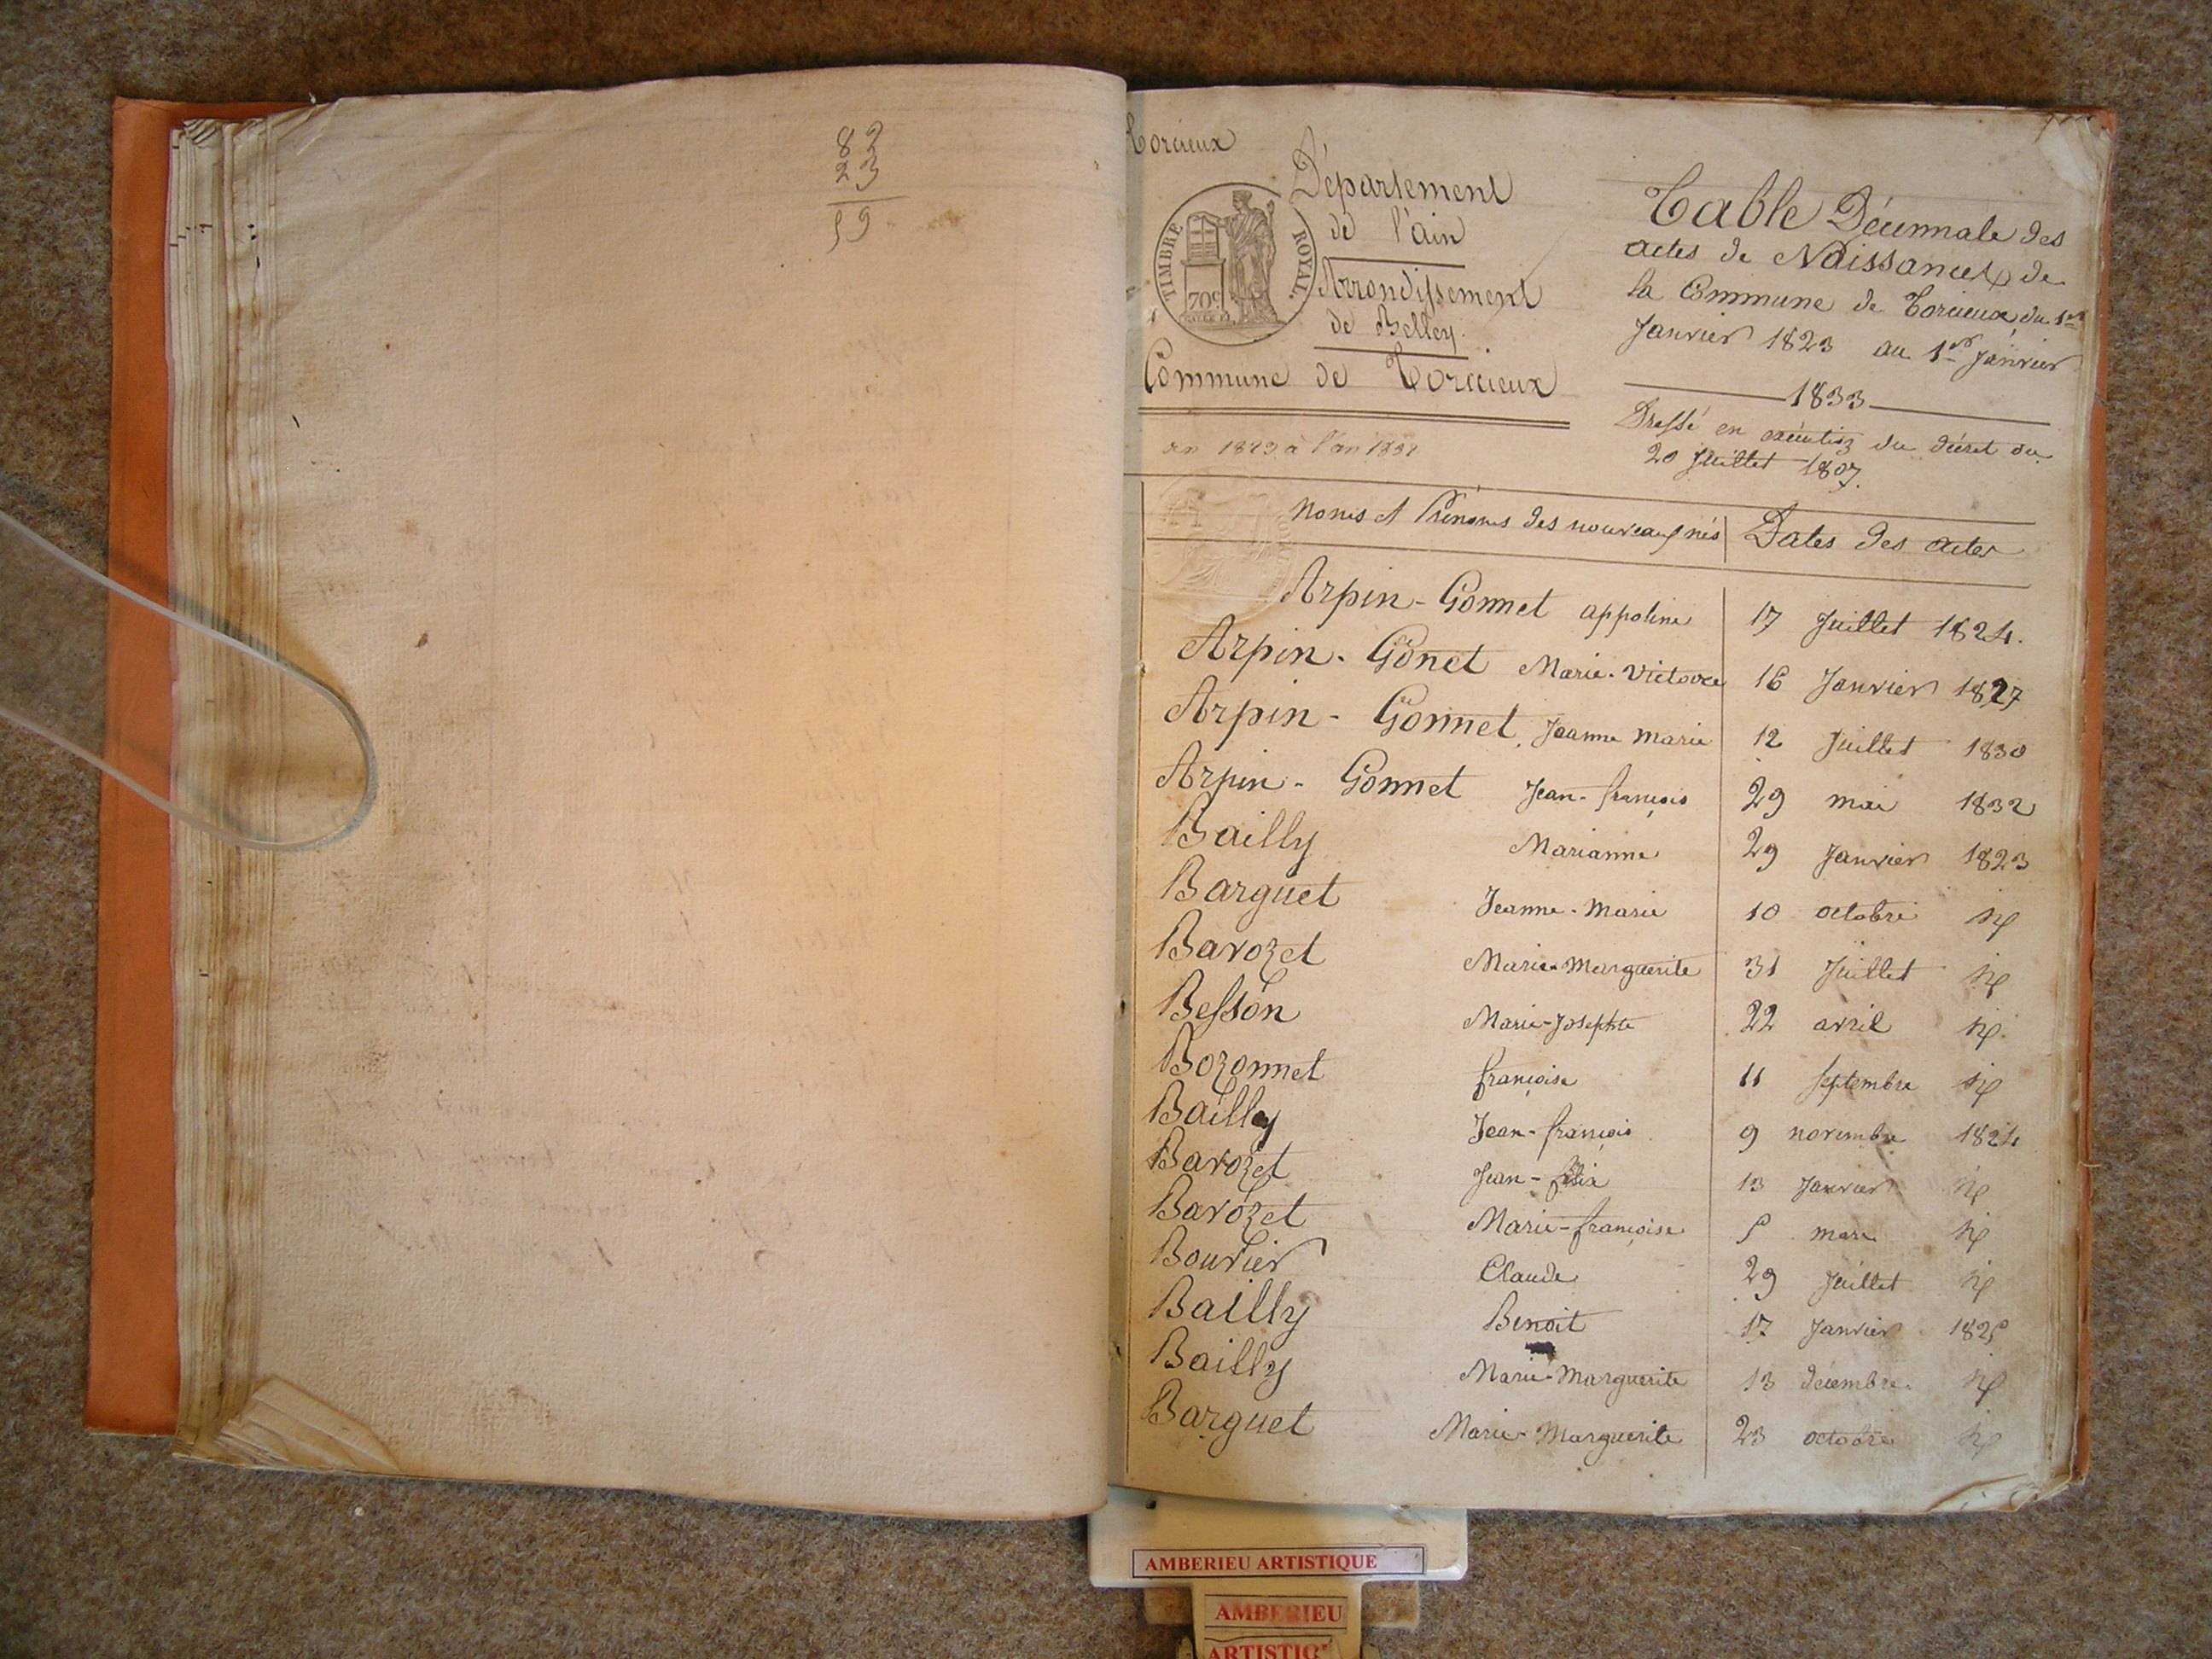 82
23
59
Torcieux
Département
de l'ain
TIMBRE ROYAL.
70c
Arrondissement
de Belley.
Commune de Torcieux
an 1823 à l'an 1832
Table Décennale des
actes de Naissances de
la Commune de Torcieux, du 1er
Janvier 1823 au 1er Janvier
1833
Dressé en exécution du décret du
20 Juillet 1807.
Noms et Prénoms des nouveaux nés Dates des actes
Arpin-Gonnet appoline 17 Juillet 1824.
Arpin-Gonet Marie-Victoire 16 Janvier 1827
Arpin-Gonnet, Jeanne marie 12 Juillet 1830
Arpin-Gonnet Jean-françois 29 mai 1832
Bailly Marianne 29 Janvier 1823
Barguet Jeanne-Marie 10 octobre id
Barozet Marie-Marguerite 31 Juillet id
Besson Marie-Josephte 22 avril id.
Bozonnet françoise 11 septembre id
Bailly Jean-françois 9 novembre 1824
Barozet Jean-félix 13 Janvier id
Barozet Marie-françoise 5 mars id
Bouvier Claude 29 Juillet id
Bailly Benoit 17 Janvier 1825
Bailly Marie-Marguerite 13 décembre id
Barguet Marie-Marguerite 23 octobre id
AMBERIEU ARTISTIQUE
AMBERIEU
ARTISTIQ